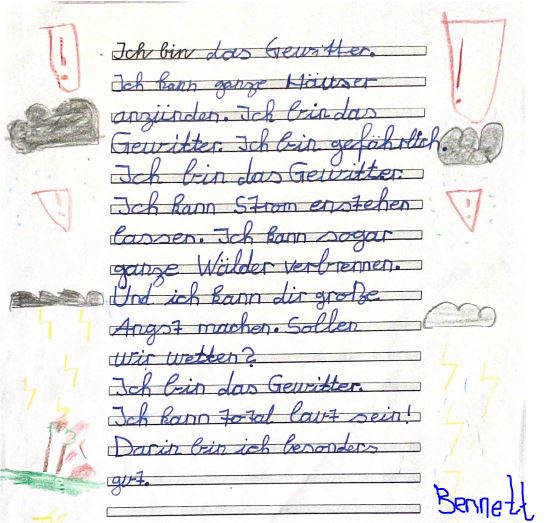 Ich bin das Gewitter.
Ich kann ganze Häuser
anzünden. Ich bin das
Gewitter. Ich bin gefährlich.
Ich bin das Gewitter.
Ich kann Strom enstehen
lassen. Ich kann sogar
ganze Wälder verbrennen.
Und ich kann dir große
Angst machen. Sollen
wir wetten?
Ich bin das Gewitter.
Ich kann total laut sein!
Darin bin ich besonders
gut.
Bennett